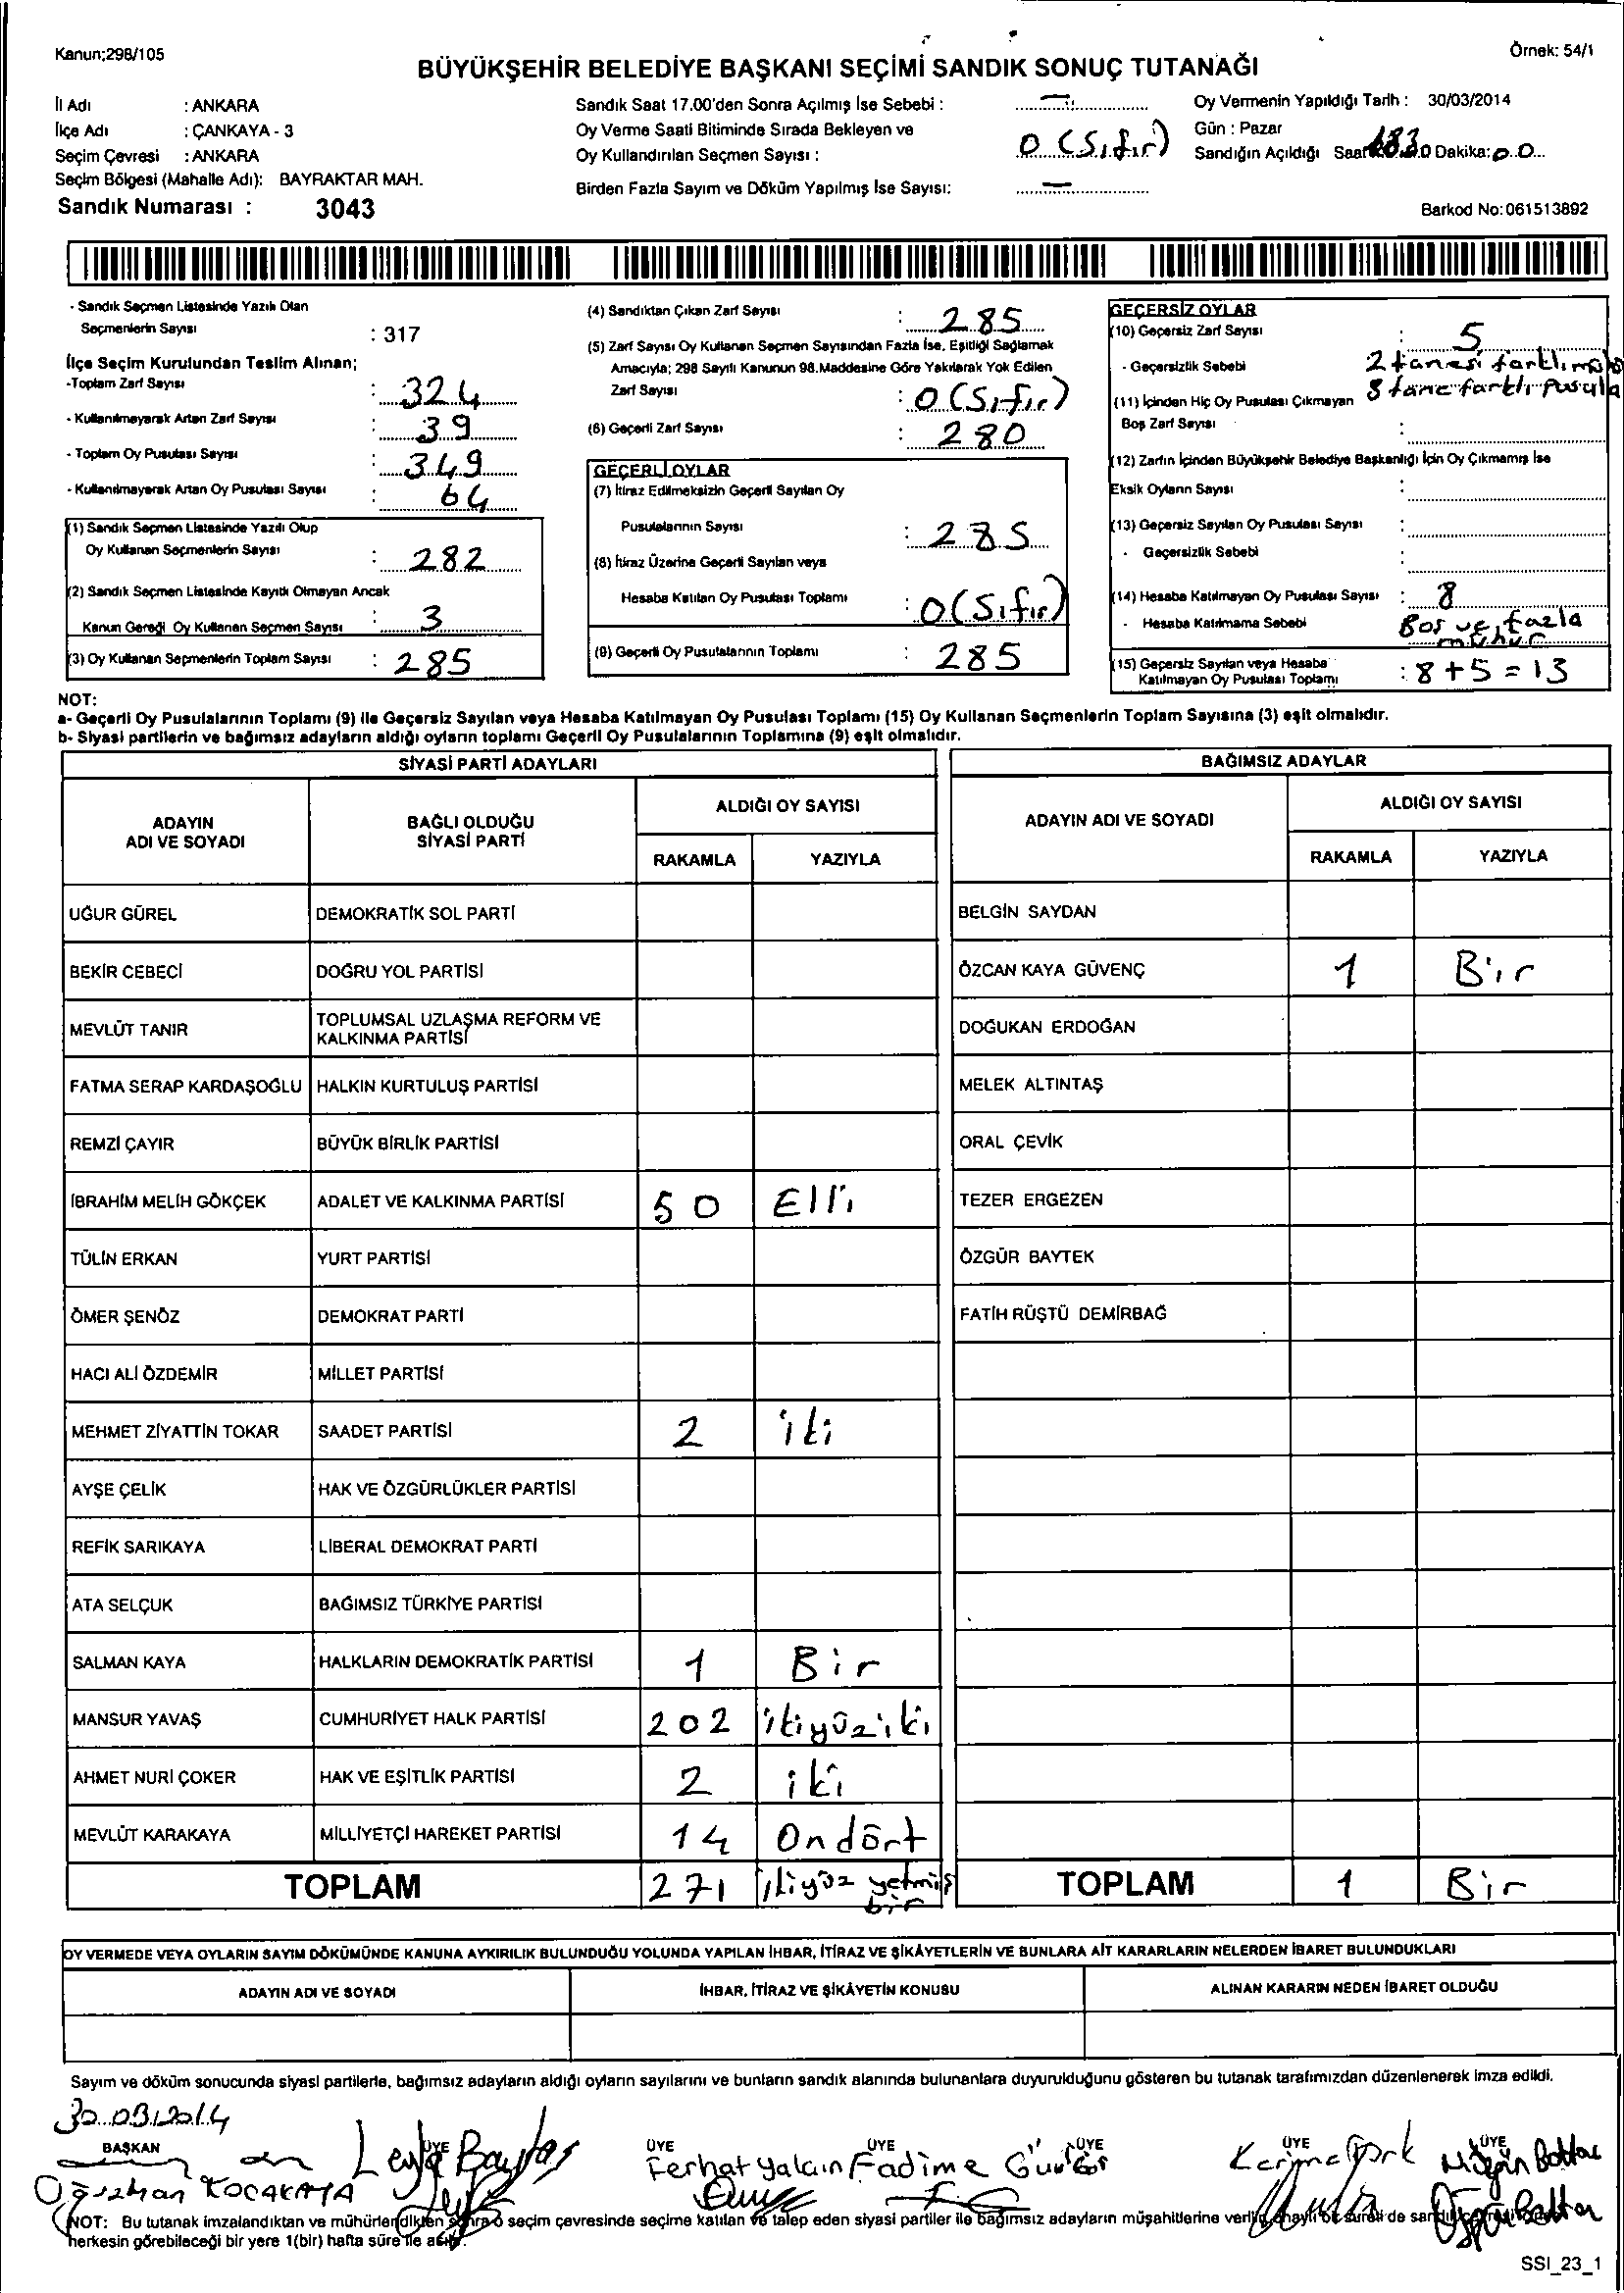 Kanun;298/105
Örnek: 54/1
BÜYÜKŞEHİR BELEDİYE BAŞKANI SEÇİMİ SANDIK SONUÇ TUTANAĞI
İl Adı : ANKARA
İlçe Adı : ÇANKAYA - 3
Seçim Çevresi : ANKARA
Seçim Bölgesi (Mahalle Adı): BAYRAKTAR MAH.
Sandık Numarası : 3043
Sandık Saat 17.00'den Sonra Açılmış İse Sebebi : —
Oy Verme Saati Bitiminde Sırada Bekleyen ve
Oy Kullandırılan Seçmen Sayısı : 0 (Sıfır)
Birden Fazla Sayım ve Döküm Yapılmış İse Sayısı: —
Oy Vermenin Yapıldığı Tarih : 30/03/2014
Gün : Pazar
Sandığın Açıldığı Saat Dakika: 00
Barkod No:061513892
- Sandık Seçmen Listesinde Yazılı Olan
Seçmenlerin Sayısı : 317
İlçe Seçim Kurulundan Teslim Alınan;
-Toplam Zarf Sayısı : 324
- Kullanılmayarak Artan Zarf Sayısı : 39
- Toplam Oy Pusulası Sayısı : 349
- Kullanılmayarak Artan Oy Pusulası Sayısı : 64
(1) Sandık Seçmen Listesinde Yazılı Olup
Oy Kullanan Seçmenlerin Sayısı : 282
(2) Sandık Seçmen Listesinde Kayıtlı Olmayan Ancak
Kanun Gereği Oy Kullanan Seçmen Sayısı : 3
(3) Oy Kullanan Seçmenlerin Toplam Sayısı : 285
(4) Sandıktan Çıkan Zarf Sayısı : 285
(5) Zarf Sayısı Oy Kullanan Seçmen Sayısından Fazla İse, Eşitliği Sağlamak
Amacıyla; 298 Sayılı Kanunun 98.Maddesine Göre Yakılarak Yok Edilen
Zarf Sayısı : 0 (Sıfır)
(6) Geçerli Zarf Sayısı : 280
GEÇERLİ OYLAR
(7) İtiraz Edilmeksizin Geçerli Sayılan Oy
Pusulalarının Sayısı : 285
(8) İtiraz Üzerine Geçerli Sayılan veya
Hesaba Katılan Oy Pusulası Toplamı : 0 (Sıfır)
(9) Geçerli Oy Pusulalarının Toplamı : 285
GEÇERSİZ OYLAR
(10) Geçersiz Zarf Sayısı : 5
- Geçersizlik Sebebi 2 tanesi farklı
3 tane farklı pusula
(11) İçinden Hiç Oy Pusulası Çıkmayan
Boş Zarf Sayısı :
(12) Zarfın İçinden Büyükşehir Belediye Başkanlığı İçin Oy Çıkmamış İse
Eksik Oyların Sayısı :
(13) Geçersiz Sayılan Oy Pusulası Sayısı :
- Geçersizlik Sebebi :
(14) Hesaba Katılmayan Oy Pusulası Sayısı : 8
- Hesaba Katılmama Sebebi Boş ve fazla
mühür
(15) Geçersiz Sayılan veya Hesaba
Katılmayan Oy Pusulası Toplamı : 8+5=13
NOT:
a- Geçerli Oy Pusulalarının Toplamı (9) ile Geçersiz Sayılan veya Hesaba Katılmayan Oy Pusulası Toplamı (15) Oy Kullanan Seçmenlerin Toplam Sayısına (3) eşit olmalıdır.
b- Siyasi partilerin ve bağımsız adayların aldığı oyların toplamı Geçerli Oy Pusulalarının Toplamına (9) eşit olmalıdır.
SİYASİ PARTİ ADAYLARI
ADAYIN ADI VE SOYADI
BAĞLI OLDUĞU SİYASİ PARTİ
ALDIĞI OY SAYISI
RAKAMLA YAZIYLA
UĞUR GÜREL DEMOKRATİK SOL PARTİ
BEKİR CEBECİ DOĞRU YOL PARTİSİ
MEVLÜT TANIR TOPLUMSAL UZLAŞMA REFORM VE KALKINMA PARTİSİ
FATMA SERAP KARDAŞOĞLU HALKIN KURTULUŞ PARTİSİ
REMZİ ÇAYIR BÜYÜK BİRLİK PARTİSİ
İBRAHİM MELİH GÖKÇEK ADALET VE KALKINMA PARTİSİ 50 Elli
TÜLİN ERKAN YURT PARTİSİ
ÖMER ŞENÖZ DEMOKRAT PARTİ
HACI ALİ ÖZDEMİR MİLLET PARTİSİ
MEHMET ZİYATTİN TOKAR SAADET PARTİSİ 2 iki
AYŞE ÇELİK HAK VE ÖZGÜRLÜKLER PARTİSİ
REFİK SARIKAYA LİBERAL DEMOKRAT PARTİ
ATA SELÇUK BAĞIMSIZ TÜRKİYE PARTİSİ
SALMAN KAYA HALKLARIN DEMOKRATİK PARTİSİ 1 Bir
MANSUR YAVAŞ CUMHURİYET HALK PARTİSİ 202 ikiyüziki
AHMET NURİ ÇOKER HAK VE EŞİTLİK PARTİSİ 2 iki
MEVLÜT KARAKAYA MİLLİYETÇİ HAREKET PARTİSİ 14 Ondört
TOPLAM 271 ikiyüz yetmiş bir
BAĞIMSIZ ADAYLAR
ADAYIN ADI VE SOYADI
ALDIĞI OY SAYISI
RAKAMLA YAZIYLA
BELGİN SAYDAN
ÖZCAN KAYA GÜVENÇ 1 Bir
DOĞUKAN ERDOĞAN
MELEK ALTINTAŞ
ORAL ÇEVİK
TEZER ERGEZEN
ÖZGÜR BAYTEK
FATİH RÜŞTÜ DEMİRBAĞ
TOPLAM 1 Bir
OY VERMEDE VEYA OYLARIN SAYIM DÖKÜMÜNDE KANUNA AYKIRILIK BULUNDUĞU YOLUNDA YAPILAN İHBAR, İTİRAZ VE ŞİKÂYETLERİN VE BUNLARA AİT KARARLARIN NELERDEN İBARET BULUNDUKLARI
ADAYIN ADI VE SOYADI
İHBAR, İTİRAZ VE ŞİKÂYETİN KONUSU
ALINAN KARARIN NEDEN İBARET OLDUĞU
Sayım ve döküm sonucunda siyasi partilerle, bağımsız adayların aldığı oyların sayılarını ve bunların sandık alanında bulunanlara duyurulduğunu gösteren bu tutanak tarafımızdan düzenlenerek imza edildi.
30.03.2014
BAŞKAN ÜYE ÜYE ÜYE ÜYE ÜYE ÜYE
Oğuzhan KOCAKAYA Leyla Ferhat Yalçın Fadime
NOT: Bu tutanak imzalandıktan ve mühürlendikten sonra o seçim çevresinde seçime katılan ve talep eden siyasi partiler ile bağımsız adayların müşahitlerine verilir,
herkesin görebileceği bir yere 1(bir) hafta süre ile asılır.
SSI_23_1